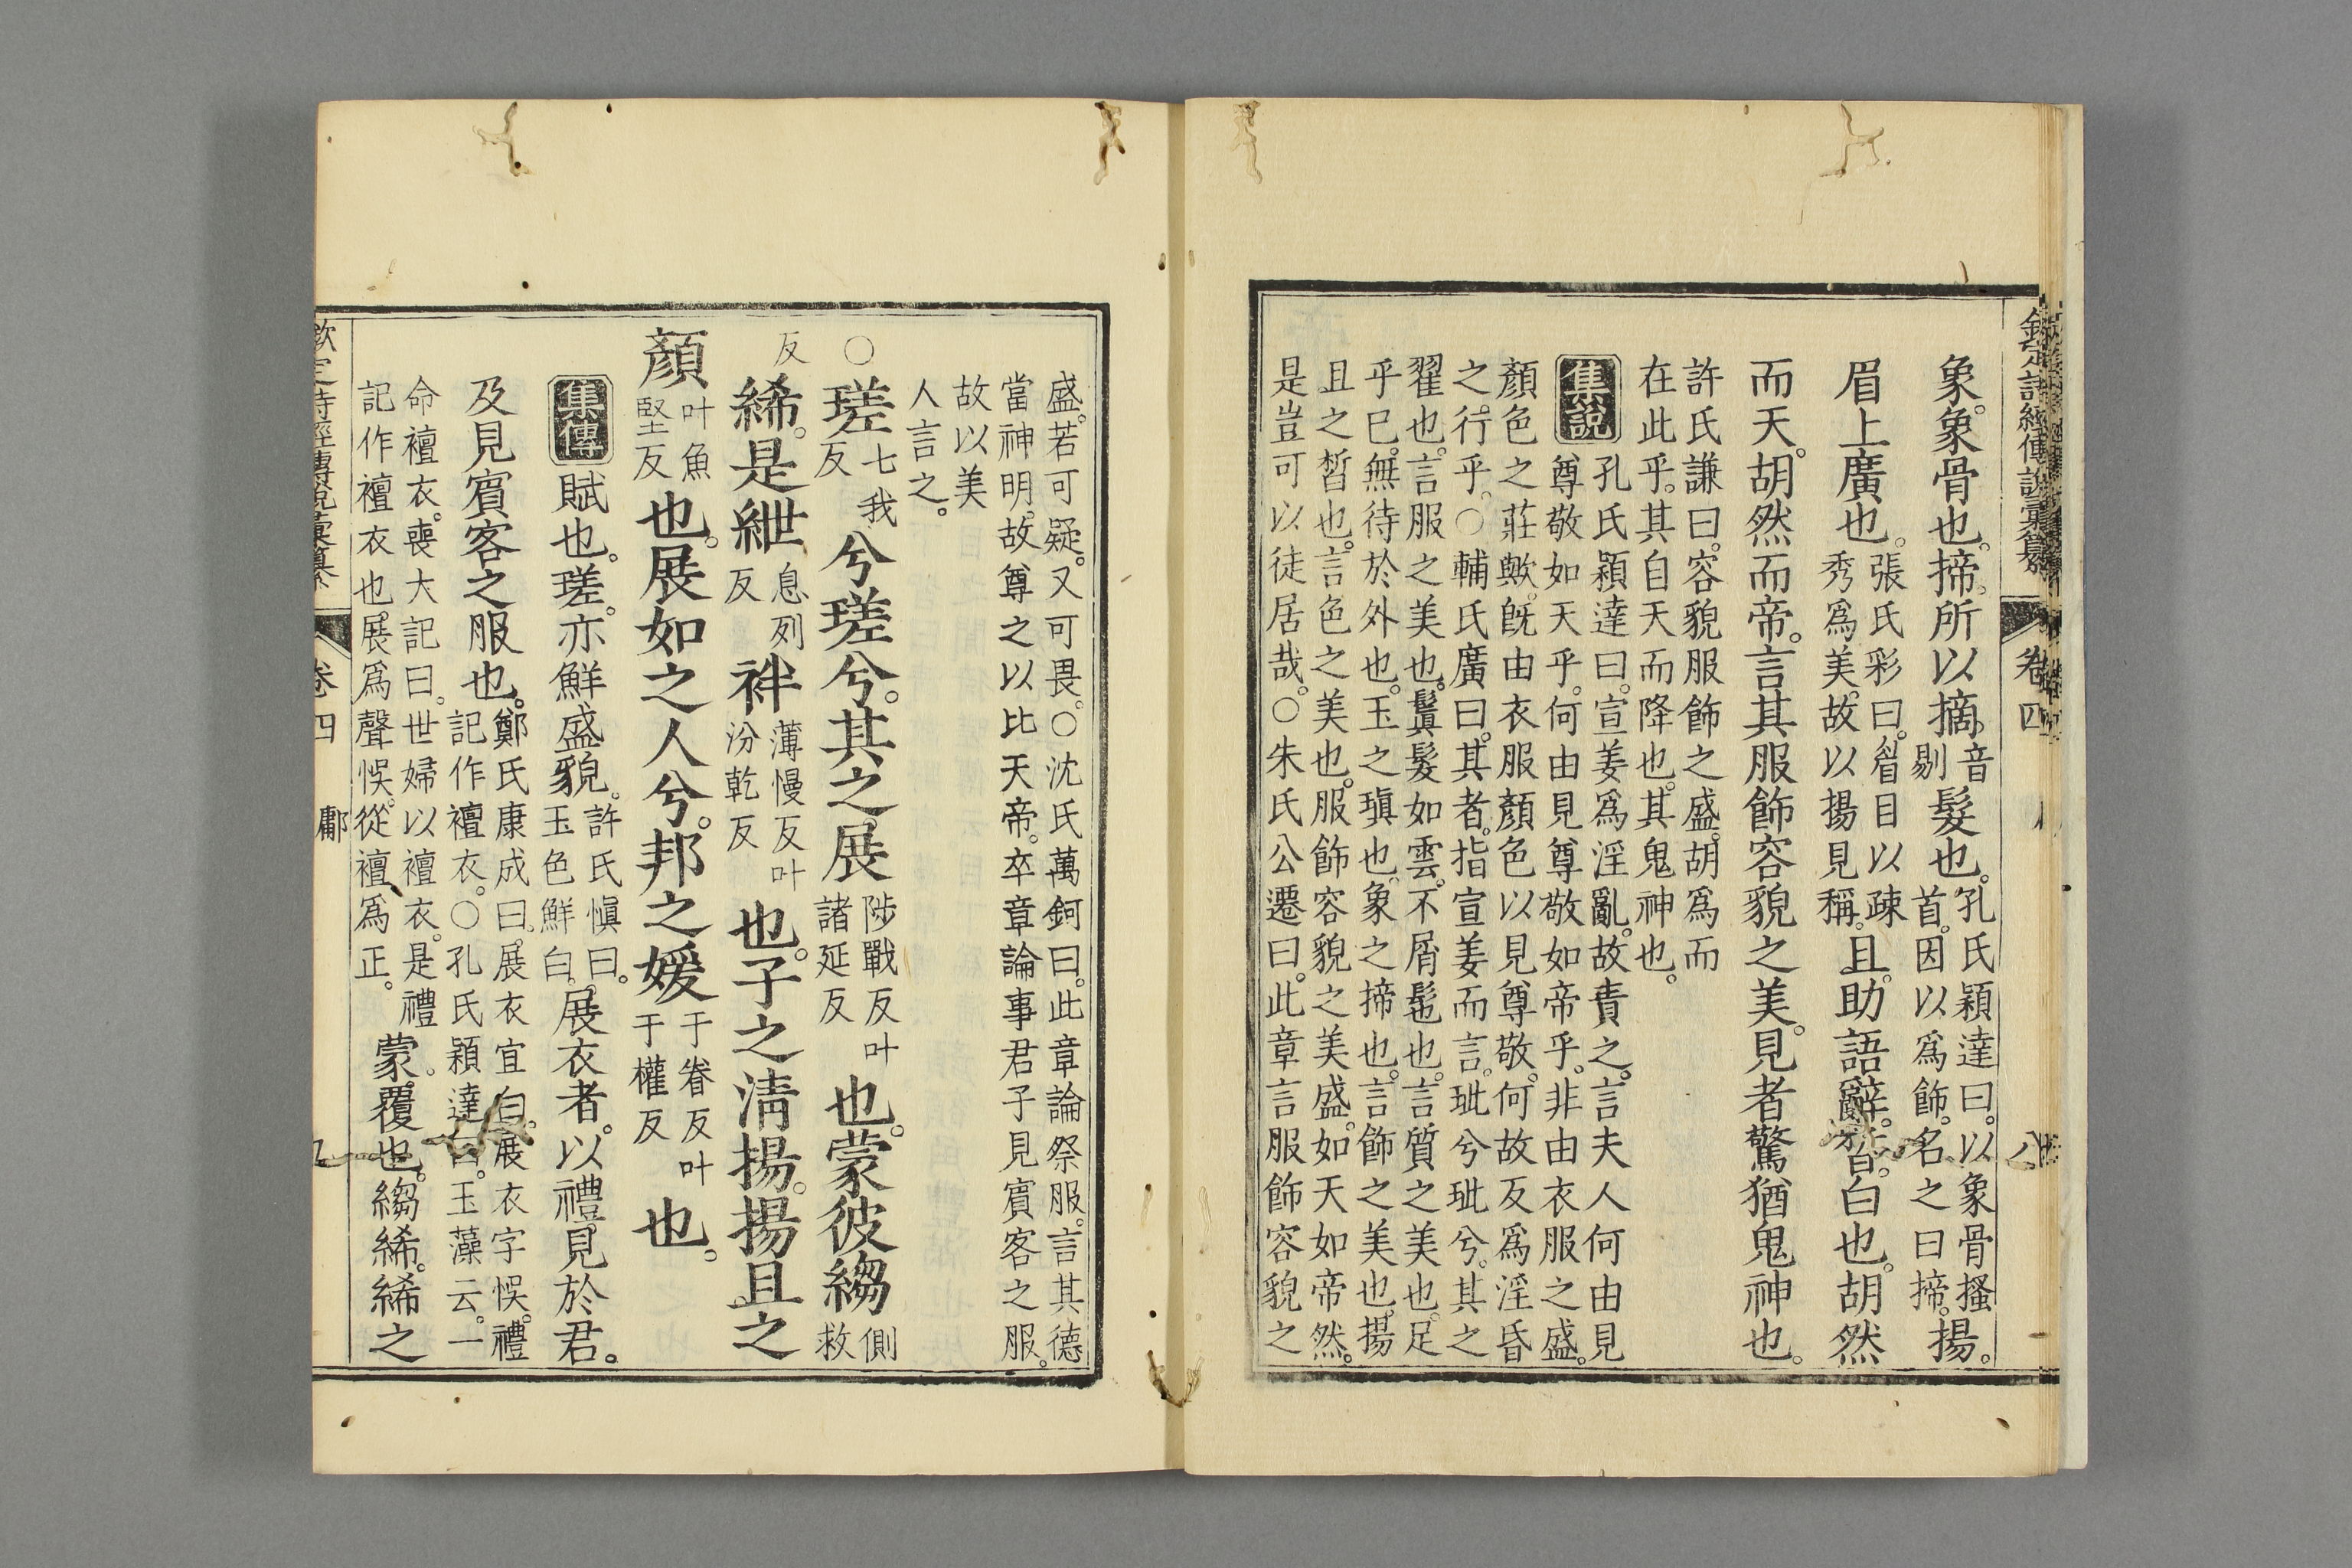 象象骨也。揥。所以摘
音
剔
髮也。
孔氏穎達曰。以象骨搔
首。因以爲飾。名之曰揥。
揚。
眉上廣也。
張氏彩曰。眉目以疎
秀爲美。故以揚見稱。
且。助語辭。晳。白也。胡然
而天。胡然而帝。言其服飾容貌之美。見者驚猶鬼神也。
許氏謙曰。容貌服飾之盛。胡爲而
在此乎。其自天而降也。其鬼神也。
集說
孔氏穎達曰。宣姜爲淫亂。故責之。言夫人何由見
尊敬如天乎。何由見尊敬如帝乎。非由衣服之盛。
顏色之莊歟。旣由衣服顏色以見尊敬。何故反爲淫昏
之行乎。○輔氏廣曰。其者。指宣姜而言。玼兮玼兮。其之
翟也。言服之美也。鬒髮如雲。不屑髢也。言質之美也。足
乎巳。無待於外也。玉之瑱也。象之揥也。言飾之美也。揚
且之晳也。言色之美也。服飾容貌之美盛。如天如帝然。
是豈可以徒居哉。○朱氏公遷曰。此章言服飾容貌之
卷四
八
盛。若可疑。又可畏。○沈氏萬鈳曰。此章論祭服。言其德
當神明。故尊之以比天帝。卒章論事君子見賓客之服。
故以美
人言之。
○瑳
七我
反
兮瑳兮。其之展
陟戰反叶
諸延反
也。蒙彼縐
側
救
反
絺。是紲
息列
反
袢
薄慢反叶
汾乾反
也。子之清揚。揚且之
顏
叶魚
堅反
也。展如之人兮。邦之媛
于眷反叶
于權反
也。
集傳
賦也。瑳。亦鮮盛貌。
許氏愼曰。
玉色鮮白。
展衣者。以禮見於君。
及見賓客之服也。
鄭氏康成曰。展衣宜白。展衣字悞。禮
記作襢衣。○孔氏穎達曰。玉藻云。一
命襢衣。喪大記曰。世婦以襢衣。是禮
記作襢衣也。展爲聲悞。從襢爲正。
蒙。覆也。縐絺。絺之
卷四
鄘